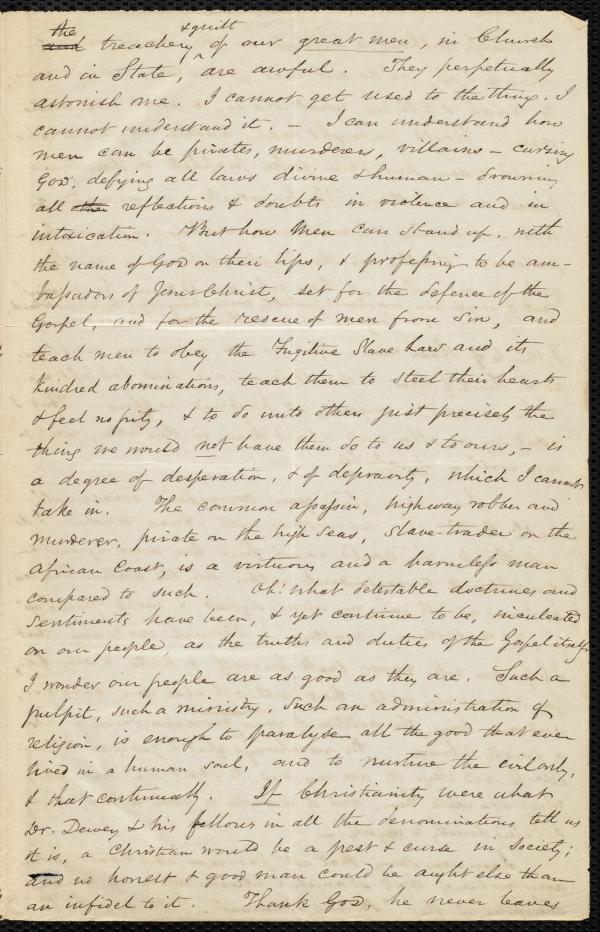 the & guilt
and treachery, of our great men, in Church
and in State, are awful. They perpetually
astonish me. I cannot get used to the thing. I
cannot understand it. – I can understand how
men can be pirates, murderers, villains – cursing
God, defying all laws divine & human – drowning
all their reflections & doubts in violence and in
intoxication. But how men can stand up, with
the name of God on their lips, & professing to be am-
bassadors of Jesus Christ, set for the defence of the
Gospel, and for the rescue of men from Sin, and
teach men to obey the Fugitive Slave Law and its
kindred abominations, teach them to steel their hearts
& feel no pity, & to do unto others just precisely the
thing we would not have them do to us & to ours, – is
a degree of desperation, & of depravity, which I cannot
take in. The common assassin, highway robber and
murderer, pirate on the high Seas, Slave-trader on the
African Coast, is a virtuous and a harmless man
compared to such. Oh! what detestable doctrines and
Sentiments have been, & yet continue to be, inculcated
on our people, as the truths and duties of the Gospel itself.
I wonder our people are as good as they are. Such a
pulpit, such a ministry, such an administration of
religion, is enough to paralyse all the good that ever
lived in a human soul, and to nurture the evil only,
& that continually. If Christianity were what
Dr. Dewey & his fellows in all the denominations tell us
it is, a Christian would be a pest & curse in Society;
and no honest & good man could be aught else than
an infidel to it. Thank God, he never leaves